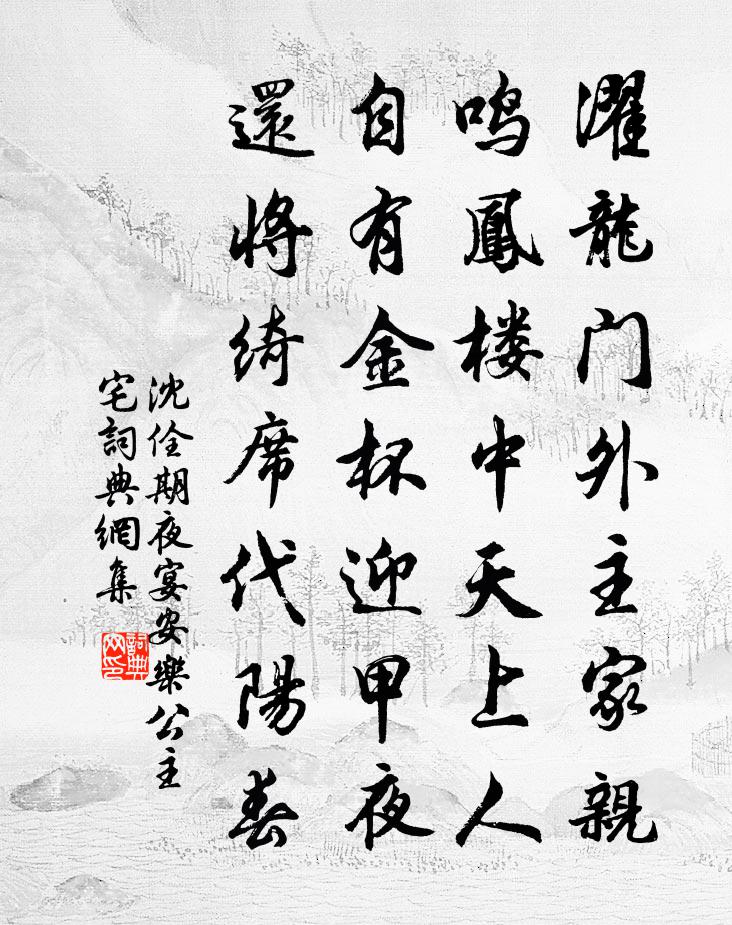 濯龍门外主家親
鸣鳳楼中天上人
自有金杯迎甲夜
還将绮席代陽春
沈佺期夜宴安樂公主
宅詞典網集
詞典
网印